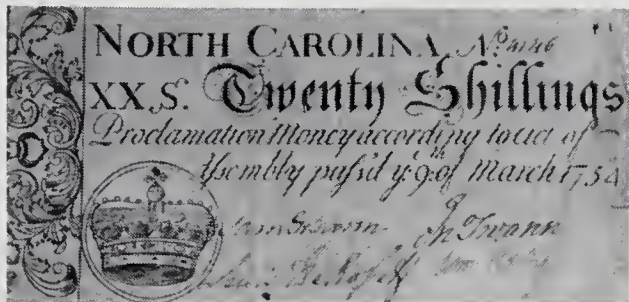 NORTH CAROLINA, No
XX,S. Twenty Shillings
Proclamation Money according to act of
Assembly pass'd ye. 9th. of March 1754
Jn Swann